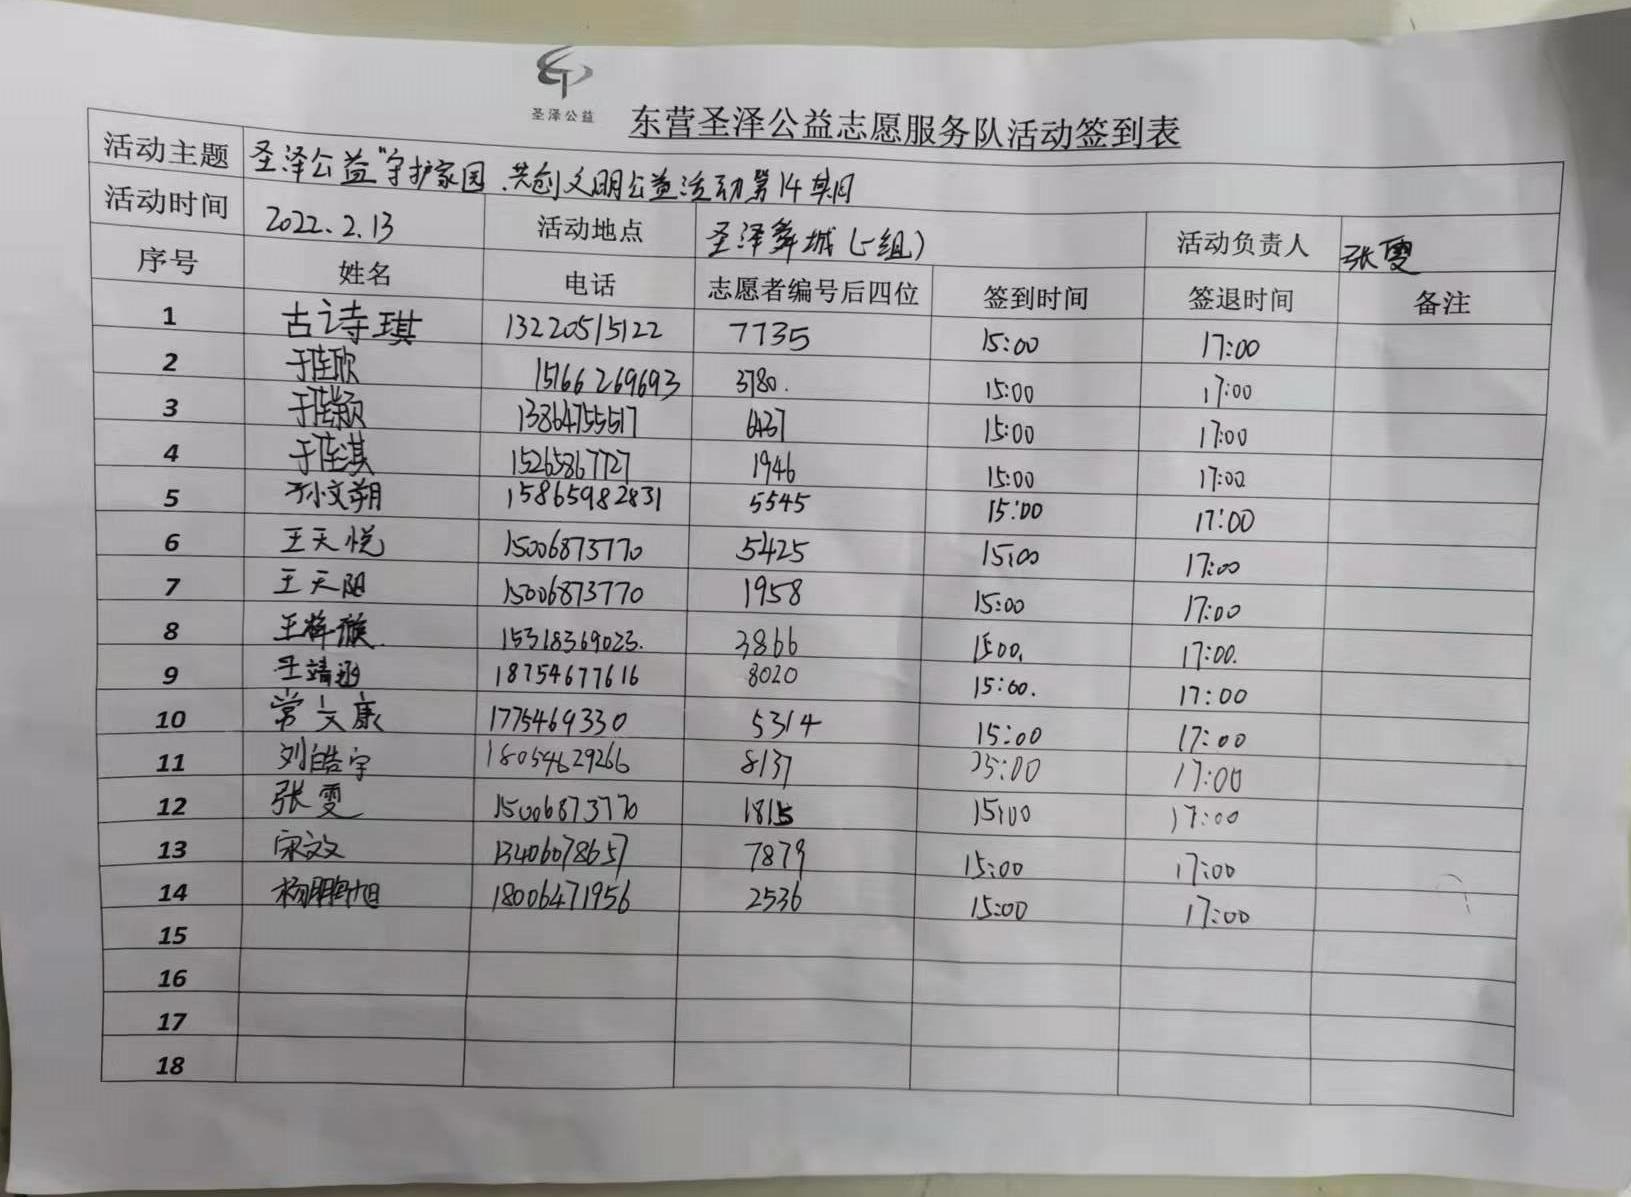 圣泽公益
东营圣泽公益志愿服务队活动签到表
活动主题 圣泽公益"守护家园、共创文明公益活动第14期
活动时间 2022.2.13 活动地点 圣泽舜城(一组) 活动负责人 张雯
序号 姓名 电话 志愿者编号后四位 签到时间 签退时间 备注
1 古诗琪 13220515122 7735 15:00 17:00
2 于佳欣 15166269693 3780. 15:00 17:00
3 于佳颖 13864755517 6437 15:00 17:00
4 于佳淇 15265867727 1946 15:00 17:00
5 孙文朔 15865982831 5545 15:00 17:00
6 王天悦 15006873770 5425 15:00 17:00
7 王天阳 15006873770 1958 15:00 17:00
8 王梓 15318369023. 3866 15:00. 17:00.
9 王靖涵 18754677616 8020 15:00. 17:00
10 常文康 1775469330 5314 15:00 17:00
11 刘皓宇 18054629266 8137 15:00 17:00
12 张雯 15006873770 1815 15:00 17:00
13 宋文文 13406078657 7879 15:00 17:00
14 杨鹏旭 18006471956 2536 15:00 17:00
15
16
17
18